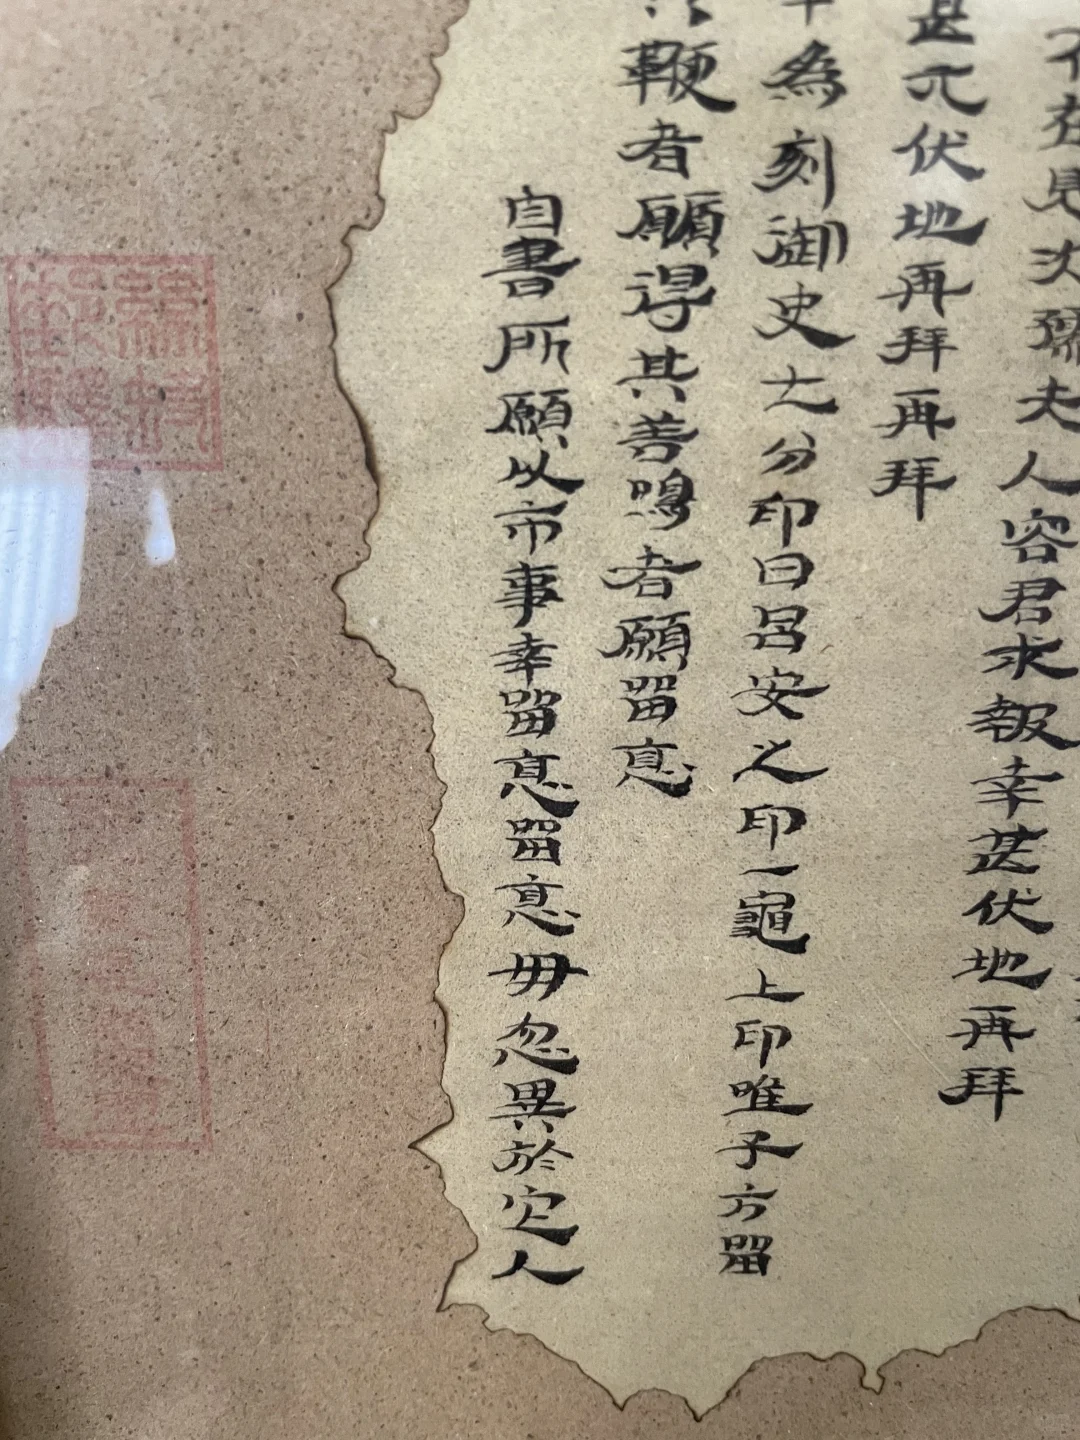 在見次孺夫人容君求報幸甚伏地再拜
甚元伏地再拜再拜
為刻御史七分印曰呂安之印一龜上印唯子方留
鞭者願得其善鳴者願留意
自書所願以市事幸留意留意毋忽異於它人